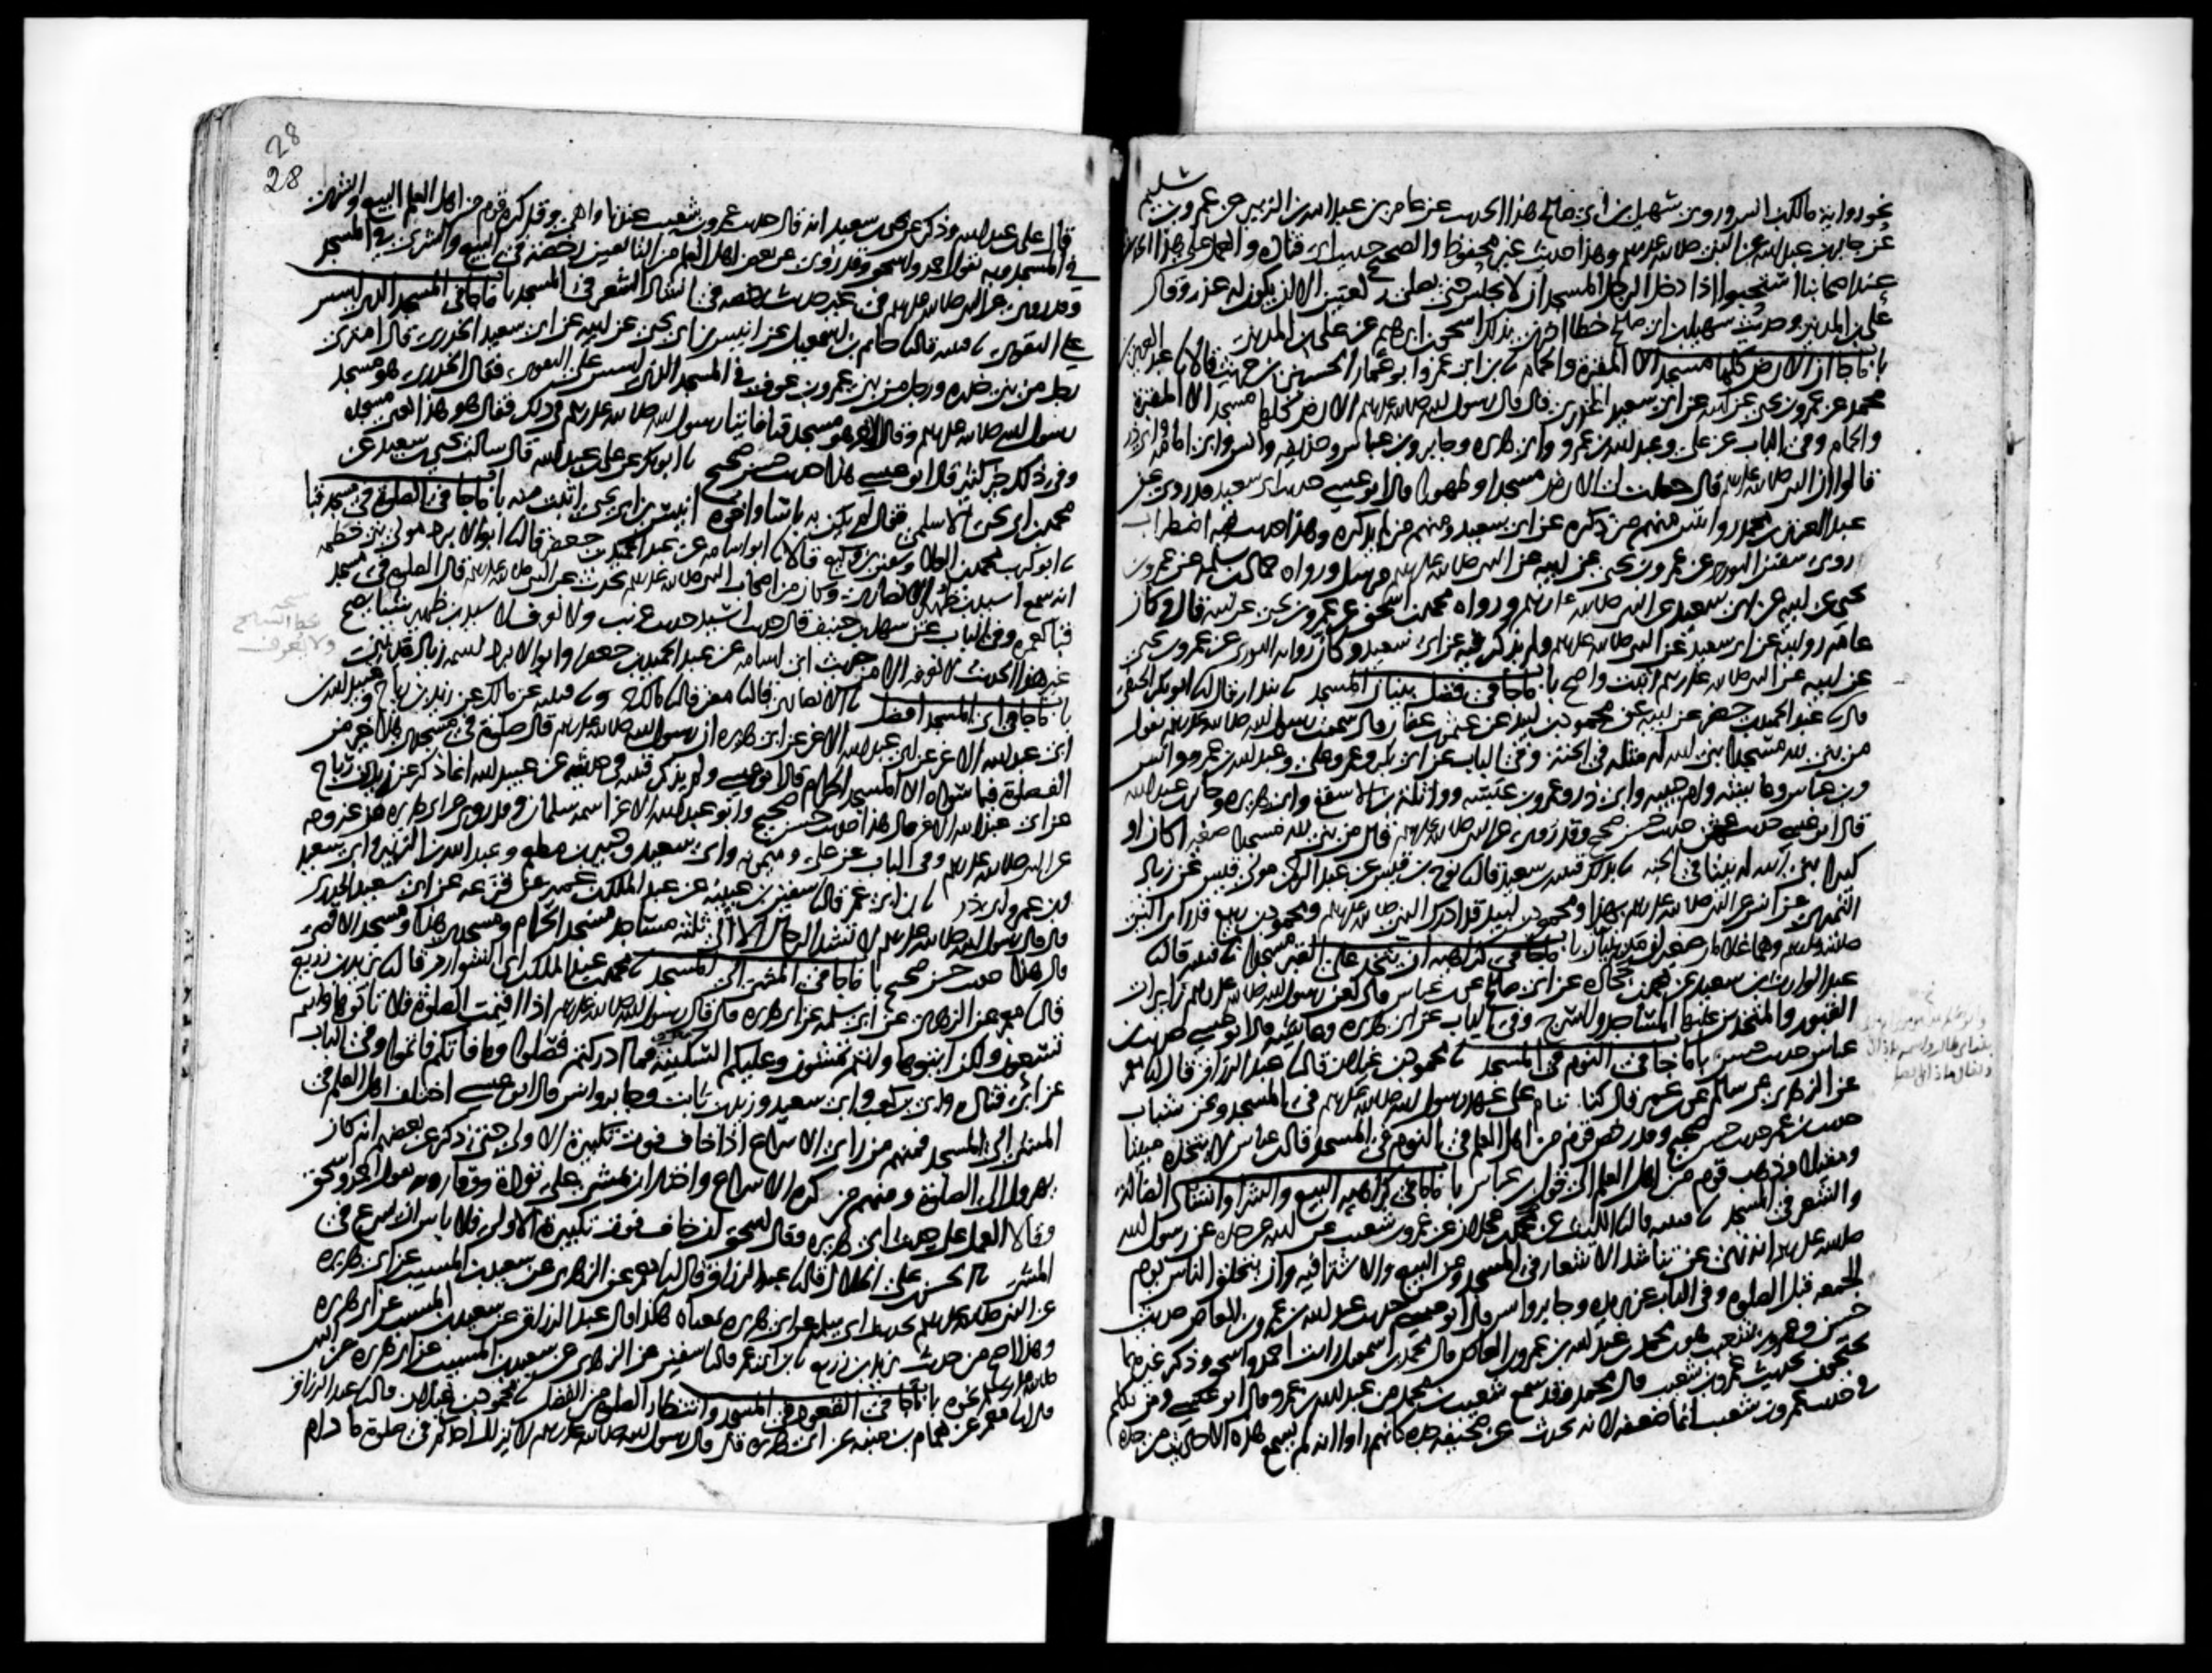 نحو رواية مالك بن انس وروى سهيل بن ابي صالح هذا الحديث عن عامر بن عبد الله بن الزبير عن عمرو بن سليم
عن جابر بن عبد الله عن النبي صلى الله عليه وسلم وهذا حديث غير محفوظ والصحيح حديث ابي قتادة والعمل على هذا الحديث
عند اصحابنا استحبوا اذا دخل الرجل المسجد ان لا يجلس حتى يصلي ركعتين الا ان يكون له عذر وقال
علي بن المديني وحديث سهيل بن ابي صالح خطا اخبرني بذلك اسحق بن ابرهيم عن علي بن المديني
باب ما جا ان الارض كلها مسجد الا المقبرة والحمام ابن ابي عمر وابو عمار الحسين بن حريث قالا عبد العزيز بن
محمد عن عمرو بن يحيى عن ابيه عن ابي سعيد الخدري قال قال رسول الله صلى الله عليه وسلم الارض كلها مسجد الا المقبرة
والحمام وفي الباب عن علي وعبد الله بن عمرو وابي هريرة وجابر وبن عباس وحذيفة وانس وابي امامة وابي ذر
قالوا ان النبي صلى الله عليه وسلم قال جعلت لي الارض مسجدا وطهورا قال ابو عيسى حديث ابي سعيد قد روي عن
عبد العزيز بن محمد روايتين منهم من ذكره عن ابي سعيد ومنهم من لم يذكره وهذا حديث فيه اضطراب
روى سفين الثوري عن عمرو بن يحيى عن ابيه عن النبي صلى الله عليه وسلم مرسل ورواه حماد بن سلمة عن عمرو بن
يحيى عن ابيه عن ابي سعيد عن النبي صلى الله عليه وسلم ورواه محمد بن اسحق عن عمرو بن يحيى عن ابيه قال وكان
عامة روايته عن ابي سعيد عن النبي صلى الله عليه وسلم ولم يذكر فيه عن ابي سعيد وكان رواية الثوري عن عمرو بن يحيى
عن ابيه عن النبي صلى الله عليه وسلم اثبت واصح باب ما جا في فضل بنيان المسجد بندار قال ابو بكر الحنفي
قال عبد الحميد بن جعفر عن ابيه عن محمود بن لبيد عن عثمن بن عفان قال سمعت رسول الله صلى الله عليه وسلم يقول
من بنى لله مسجدا بنى الله له مثله في الجنة وفي الباب عن ابي بكر وعمر وعلي وعبد الله بن عمرو وانس
وبن عباس وعائشة وام حبيبة وابي ذر وعمرو بن عبسة وواثلة بن الاسقع وابي هريرة وجابر بن عبد الله
قال ابو عيسى حديث عثمن حديث حسن صحيح وقد روي عن النبي صلى الله عليه وسلم قال من بنى لله مسجدا صغيرا كان او
كبيرا بنى الله له بيتا في الجنة بذلك قتيبة بن سعيد قال نوح بن قيس عن عبد الرحمن مولى قيس عن زياد
النميري عن انس عن النبي صلى الله عليه وسلم بهذا ومحمود بن لبيد قد ادرك النبي صلى الله عليه وسلم ومحمود بن ربيع قد راى النبي
صلى الله عليه وسلم وهما غلامان صغيران مدنيان باب ما جا في كراهية ان يتخذ على القبر مسجدا قتيبة قال
عبد الوارث بن سعيد عن محمد بن جحادة عن ابي صالح عن بن عباس قال لعن رسول الله صلى الله عليه وسلم زايرات
القبور والمتخذين عليها المساجد والسرج وفي الباب عن ابي هريرة وعائشة قال ابو عيسى حديث بن
عباس حديث حسن باب ما جا في النوم في المسجد محمود بن غيلان قال عبد الرزاق قال معمر
عن الزهري عن سالم عن بن عمر قال كنا ننام على عهد رسول الله صلى الله عليه وسلم في المسجد ونحن شباب
حديث بن عمر حديث حسن صحيح وقد رخص قوم من اهل العلم في النوم في المسجد قال بن عباس لا يتخذه مبيتا
ومقيلا وذهب قوم من اهل العلم الى قول بن عباس باب ما جا في كراهية البيع والشرا وانشاد الضالة
والشعر في المسجد قتيبة قال الليث عن بن عجلان عن عمرو بن شعيب عن ابيه عن جده عن رسول الله
صلى الله عليه وسلم انه نهى عن تناشد الاشعار في المسجد وعن البيع والاشترا فيه وان يتحلق الناس يوم
الجمعة قبل الصلوة وفي الباب عن بريدة وجابر وانس قال ابو عيسى حديث عبد الله بن عمرو بن العاص حديث
حسن وعمرو بن شعيب هو بن محمد بن عبد الله بن عمرو بن العاص قال محمد بن اسمعيل رايت احمد واسحق وذكر غيرهما
يحتجون بحديث عمرو بن شعيب قال محمد وقد سمع شعيب بن محمد من عبد الله بن عمرو قال ابو عيسى ومن تكلم
في حديث عمرو بن شعيب انما ضعفه لانه يحدث عن صحيفة جده كانهم راوا انه لم يسمع هذه الاحاديث من جده
28
28
قال علي بن عبد الله وذكر عن يحيى بن سعيد انه قال حديث عمرو بن شعيب عندنا واهي وقد كره قوم من اهل العلم البيع والشرى
في المسجد وبه يقول احمد واسحق وقد روي عن بعض اهل العلم من التابعين رخصة في البيع والشرى في المسجد
وقد روي عن النبي صلى الله عليه وسلم في غير حديث رخصة في انشاد الشعر في المسجد باب ما جا في المسجد الذي اسس
على التقوى قتيبة قال حاتم بن اسمعيل عن انيس بن ابي يحيى عن ابيه عن ابي سعيد الخدري قال امترى
رجل من بني خدرة ورجل من بني عمرو بن عوف في المسجد الذي اسس على التقوى فقال الخدري هو مسجد
رسول الله صلى الله عليه وسلم وقال الاخر هو مسجد قبا فاتيا رسول الله صلى الله عليه وسلم في ذلك فقال هو هذا يعني مسجده
وفي ذلك خير كثير قال ابو عيسى هذا حديث حسن صحيح ابو بكر عن علي بن عبد الله قال سالت يحيى بن سعيد عن
محمد بن ابي يحيى الاسلمي فقال لم يكن به باس واخوه انيس بن ابي يحيى اثبت منه باب ما جا في الصلوة في مسجد قبا
ابو كريب محمد بن العلا وسفين بن وكيع قالا ابو اسامة عن عبد الحميد بن جعفر قال ابو الابرد مولى بني خطمة
انه سمع اسيد بن ظهير الانصاري وكان من اصحاب النبي صلى الله عليه وسلم يحدث عن النبي صلى الله عليه وسلم قال الصلوة في مسجد
قبا كعمرة وفي الباب عن سهل بن حنيف قال حديث اسيد حديث غريب ولا نعرف لاسيد بن ظهير شيا يصح
غير هذا الحديث لا نعرفه الا من حديث ابي اسامة عن عبد الحميد بن جعفر وابو الابرد اسمه زياد مديني
باب ما جا في اي المسجد افضل الانصاري قال معن قال مالك وقتيبة عن مالك عن زيد بن رباح وعبيد الله بن
ابي عبد الله الاغر عن ابي عبد الله الاغر عن ابي هريرة ان رسول الله صلى الله عليه وسلم قال صلوة في مسجدي هذا خير من
الف صلوة فيما سواه الا المسجد الحرام قال ابو عيسى ولم يذكر قتيبة في حديثه عن عبيد الله انما ذكر عن زيد بن رباح
عن ابي عبد الله الاغر قال هذا حديث حسن صحيح وابو عبد الله الاغر اسمه سلمان وقد روي عن ابي هريرة من غير وجه
عن النبي صلى الله عليه وسلم وفي الباب عن علي وميمونة وابي سعيد وجبير بن مطعم وعبد الله بن الزبير وابي سعيد
وبن عمر وابي ذر ابن ابي عمر قال سفين بن عيينة عن عبد الملك بن عمير عن قزعة عن ابي سعيد الخدري
قال قال رسول الله صلى الله عليه وسلم لا تشد الرحال الا الى ثلثة مساجد مسجد الحرام ومسجدي هذا ومسجد الاقصى
قال هذا حديث حسن صحيح باب ما جا في المشي الى المسجد محمد بن عبد الملك بن ابي الشوارب قال يزيد بن زريع
قال معمر عن الزهري عن ابي سلمة عن ابي هريرة قال قال رسول الله صلى الله عليه وسلم اذا اقيمت الصلوة فلا تاتوها وانتم
تسعون ولكن ايتوها وانتم تمشون وعليكم السكينة فما ادركتم فصلوا وما فاتكم فاتموا وفي الباب
عن ابي قتادة وابي بن كعب وابي سعيد وزيد بن ثابت وجابر وانس قال ابو عيسى اختلف اهل العلم في
المشي الى المسجد فمنهم من راى الاسراع اذا خاف فوت تكبيرة الاولى حتى ذكر عن بعضهم انه كان
يهرول الى الصلوة ومنهم من كره الاسراع واختار ان يمشي على تؤدة ووقار وبه يقول احمد واسحق
وقالا العمل على حديث ابي هريرة وقال اسحق ان خاف فوت تكبيرة الاولى فلا باس ان يسرع في
المشي الحسن بن علي الخلال قال عبد الرزاق قال معمر عن الزهري عن سعيد بن المسيب عن ابي هريرة
عن النبي صلى الله عليه وسلم نحو حديث ابي سلمة عن ابي هريرة بمعناه هكذا قال عبد الرزاق عن سعيد بن المسيب عن ابي هريرة
وهذا اصح من حديث يزيد بن زريع ابن ابي عمر قال سفين عن الزهري عن سعيد بن المسيب عن ابي هريرة عن النبي
صلى الله عليه وسلم نحوه باب ما جا في القعود في المسجد وانتظار الصلوة من الفضل محمود بن غيلان قال عبد الرزاق
قال معمر عن همام بن منبه عن ابي هريرة قال قال رسول الله صلى الله عليه وسلم لا يزال احدكم في صلوة ما دام